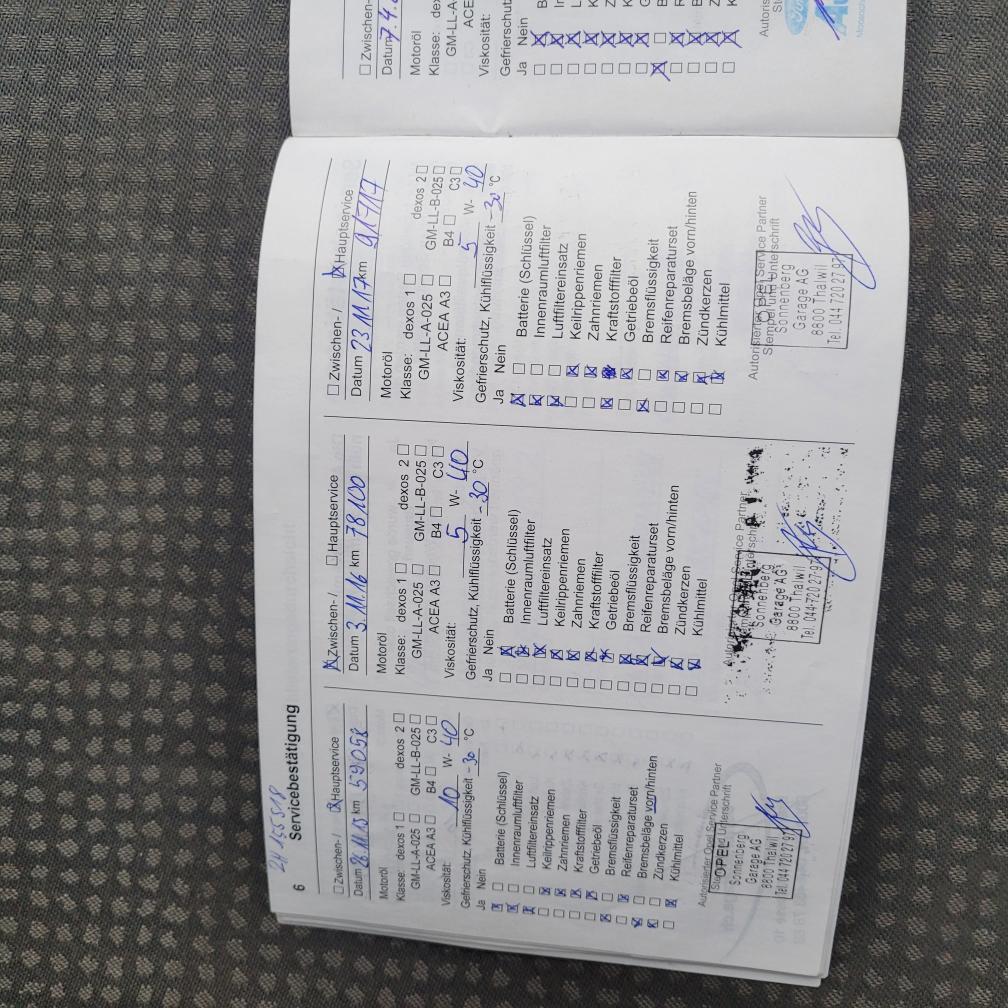 ZH 155518
6 Servicebestätigung
☐ Zwischen- / ☒ Hauptservice
Datum 26.11.15 km 59058
Motoröl
Klasse: dexos 1 ☐ dexos 2 ☐
GM-LL-A-025 ☐ GM-LL-B-025 ☐
ACEA A3 ☐ B4 ☐ C3 ☐
Viskosität: 10 W- 40
Gefrierschutz, Kühlflüssigkeit -30 °C
Ja Nein
☒ ☐ Batterie (Schlüssel)
☒ ☐ Innenraumluftfilter
☒ ☐ Luftfiltereinsatz
☐ ☒ Keilrippenriemen
☐ ☒ Zahnriemen
☐ ☒ Kraftstofffilter
☐ ☒ Getriebeöl
☒ ☐ Bremsflüssigkeit
☐ ☒ Reifenreparaturset
☒ ☐ Bremsbeläge vorn/hinten
☒ ☐ Zündkerzen
☐ ☒ Kühlmittel
Autorisierter Opel Service Partner
Stempel und Unterschrift
OPEL
Sonnenberg
Garage AG
8800 Thalwil
Tel. 044 720 27 97
☒ Zwischen- / ☐ Hauptservice
Datum 3.11.16 km 78100
Motoröl
Klasse: dexos 1 ☐ dexos 2 ☐
GM-LL-A-025 ☐ GM-LL-B-025 ☐
ACEA A3 ☐ B4 ☐ C3 ☐
Viskosität: 5 W- 40
Gefrierschutz, Kühlflüssigkeit -30 °C
Ja Nein
☐ ☒ Batterie (Schlüssel)
☐ ☒ Innenraumluftfilter
☐ ☒ Luftfiltereinsatz
☐ ☒ Keilrippenriemen
☐ ☒ Zahnriemen
☐ ☒ Kraftstofffilter
☐ ☒ Getriebeöl
☐ ☒ Bremsflüssigkeit
☐ ☒ Reifenreparaturset
☐ ☒ Bremsbeläge vorn/hinten
☐ ☒ Zündkerzen
☐ ☒ Kühlmittel
Service Partner
Sonnenberg
Garage AG
8800 Thalwil
Tel. 044 720 27 97
☐ Zwischen- / ☒ Hauptservice
Datum 23.11.17 km 91717
Motoröl
Klasse: dexos 1 ☐ dexos 2 ☐
GM-LL-A-025 ☐ GM-LL-B-025 ☐
ACEA A3 ☐ B4 ☐ C3 ☐
Viskosität: 5 W- 40
Gefrierschutz, Kühlflüssigkeit -30 °C
Ja Nein
☒ ☐ Batterie (Schlüssel)
☒ ☐ Innenraumluftfilter
☒ ☐ Luftfiltereinsatz
☐ ☒ Keilrippenriemen
☐ ☒ Zahnriemen
☒ ☒ Kraftstofffilter
☐ ☒ Getriebeöl
☒ ☐ Bremsflüssigkeit
☐ ☒ Reifenreparaturset
☐ ☒ Bremsbeläge vorn/hinten
☐ ☒ Zündkerzen
☐ ☒ Kühlmittel
Autorisierter Opel Service Partner
Stempel und Unterschrift
OPEL
Sonnenberg
Garage AG
8800 Thalwil
Tel. 044 720 27 97
☐ Zwischen-
Datum 7.4.
Motoröl
Klasse: dex
GM-LL-A
ACE
Viskosität:
Gefrierschut
Ja Nein